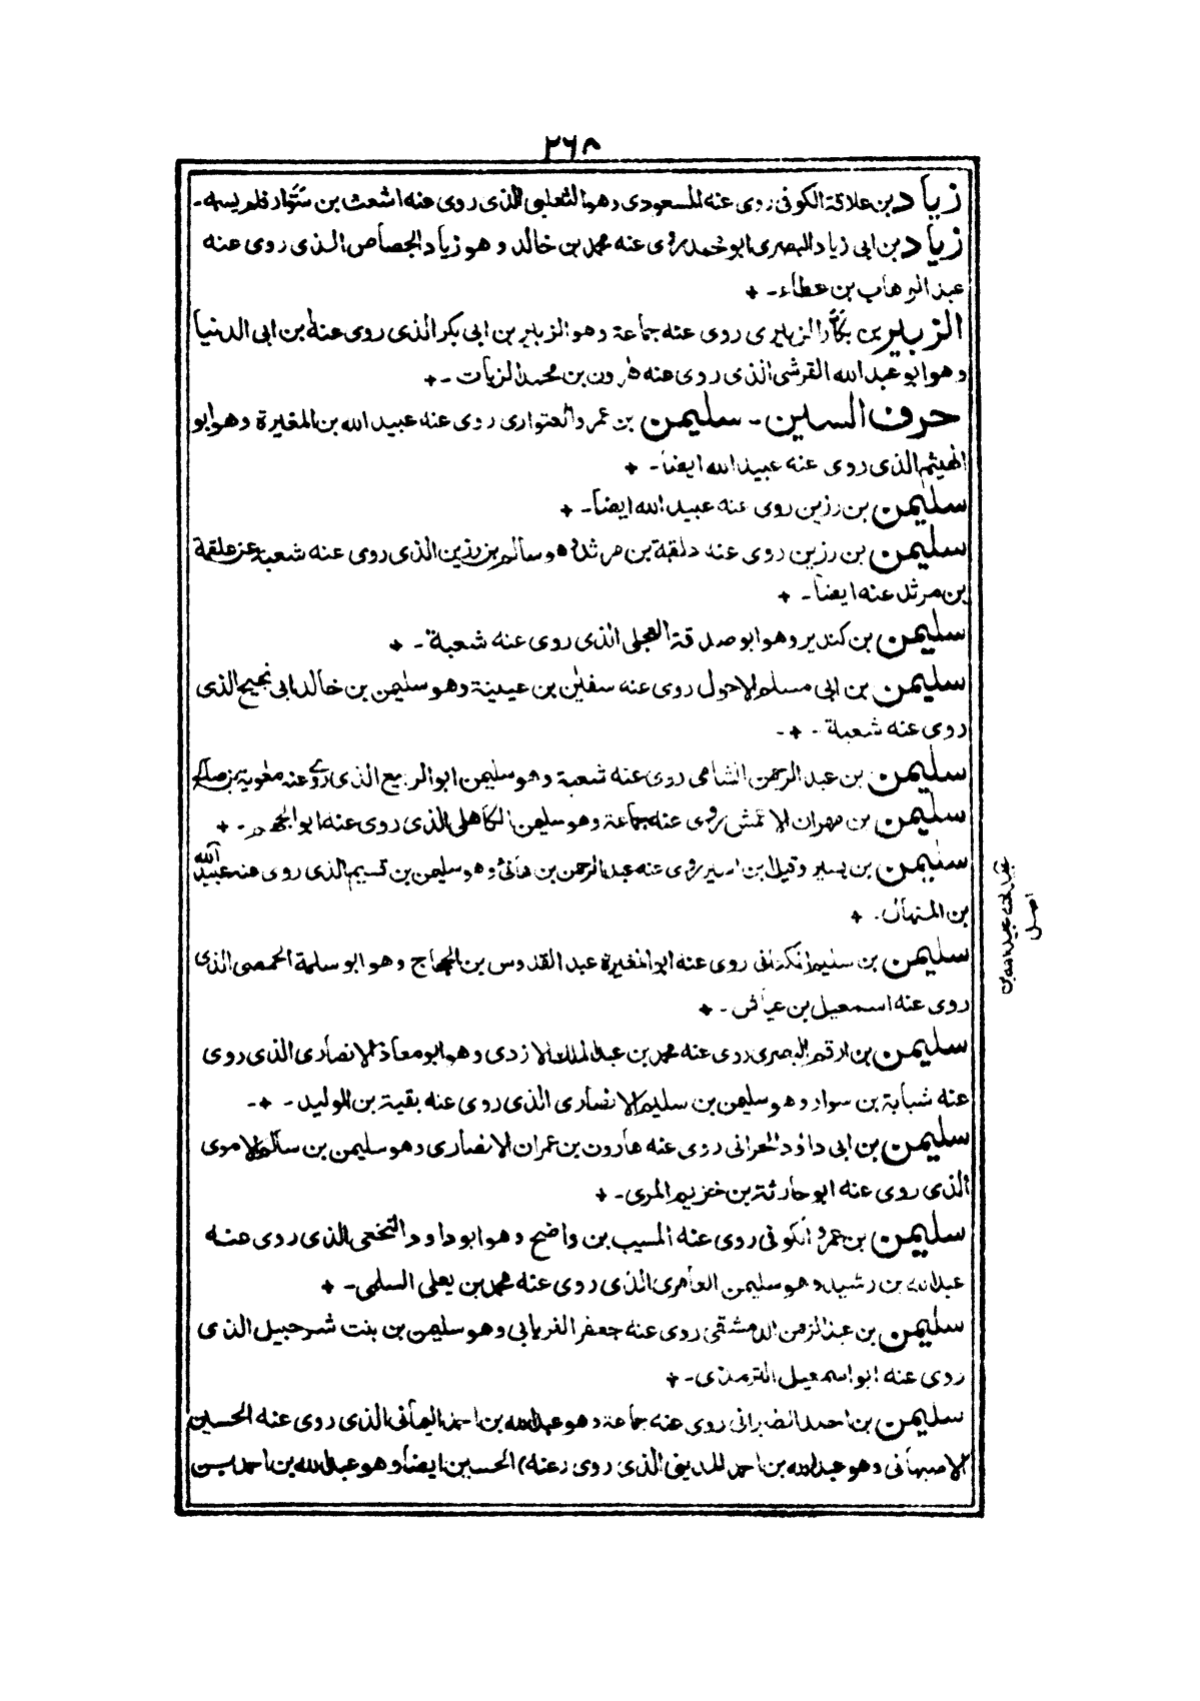 ٢٦٨
زياد بن علاقة الكوفى روى عنه المسعودى وهو الثعلبى الذى روى عنه اشعث بن سوار فلم يسمه -
زياد بن ابى زياد البصرى ابو محمد روى عنه محمد بن خالد وهو زياد الجصاص الذى روى عنه
عبد الوهاب بن عطاء - +
الزبير بن بكار الزبيرى روى عنه جماعة وهو الزبير بن ابى بكر الذى روى عنه ابن ابى الدنيا
وهو ابو عبد الله القرشى الذى روى عنه هارون بن محمد الزيات - +
حرف السين - سليمن بن عمرو العتوارى روى عنه عبيد الله بن المغيرة وهو ابو
الهيثم الذى روى عنه عبيد الله ايضا - +
سليمن بن رزين روى عنه عبيد الله ايضا - +
سليمن بن رزين روى عنه علقمة بن مرثد وهو سالم بن رزين الذى روى عنه شعبة عن علقمة
بن مرثد عنه ايضا - +
سليمن بن كندير وهو ابو صدقة العجلى الذى روى عنه شعبة - +
سليمن بن ابى مسلم الاحول روى عنه سفين بن عيينة وهو سليمن بن خال ابى نجيح الذى
روى عنه شعبة - + -
سليمن بن عبد الرحمن الشامى روى عنه شعبة وهو سليمن ابو الربيع الذى روى عنه معوية بن صالح
سليمن بن مهران الاعمش روى عنه جماعة وهو سليمن الكاهلى الذى روى عنه ابو الجهم - +
سليمن بن يسير وقيل ابن اسير روى عنه عبد الرحمن بن هانئ وهو سليمن بن قسيم الذى روى عنه عبيد الله
بن المنهال - +
سليمن بن سليم الكنانى روى عنه ابو المغيرة عبد القدوس بن الحجاج وهو ابو سلمة الحمصى الذى
روى عنه اسمعيل بن عياش - +
سليمن بن ارقم البصرى روى عنه محمد بن عبد الملك الازدى وهو ابو معاذ الانصارى الذى روى
عنه شبابة بن سوار وهو سليمن بن سليم الانصارى الذى روى عنه بقية بن الوليد - + -
سليمن بن ابى داود الحرانى روى عنه هارون بن عمران الانصارى وهو سليمن بن سالم الاموى
الذى روى عنه ابو حارثة بن خزيم المرى - +
سليمن بن عمرو الكوفى روى عنه المسيب بن واضح وهو ابو داود النخعى الذى روى عنه
عبد الله بن رشيد وهو سليمن العامرى الذى روى عنه محمد بن يعلى السلمى - +
سليمن بن عبد الرحمن الدمشقى روى عنه جعفر الفريابى وهو سليمن بن بنت شرحبيل الذى
روى عنه ابو اسمعيل الترمذى - +
سليمن بن احمد الطبرانى روى عنه جماعة وهو عبد الله بن احمد اليمانى الذى روى عنه الحسين
الاصبهانى وهو عبد الله بن احمد المدينى الذى روى (عنه) الحسين ايضا وهو عبد الله بن احمد بن
عبيد الله بن
اصل